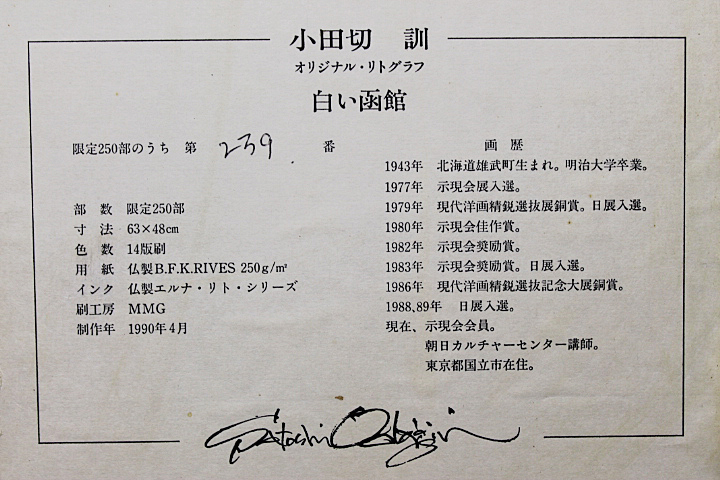 小田切 訓
オリジナル・リトグラフ
白い函館
限定250部のうち 第 239 番
部 数 限定250部
寸 法 63×48㎝
色 数 14版刷
用 紙 仏製B.F.K.RIVES 250g/㎡
インク 仏製エルナ・リト・シリーズ
刷工房 MMG
制作年 1990年4月
画 歴
1943年 北海道雄武町生まれ。明治大学卒業。
1977年 示現会展入選。
1979年 現代洋画精鋭選抜展銅賞。日展入選。
1980年 示現会佳作賞。
1982年 示現会奨励賞。
1983年 示現会奨励賞。日展入選。
1986年 現代洋画精鋭選抜記念大展銅賞。
1988、89年 日展入選。
現在、示現会会員。
朝日カルチャーセンター講師。
東京都国立市在住。
Satoshi Otagiri